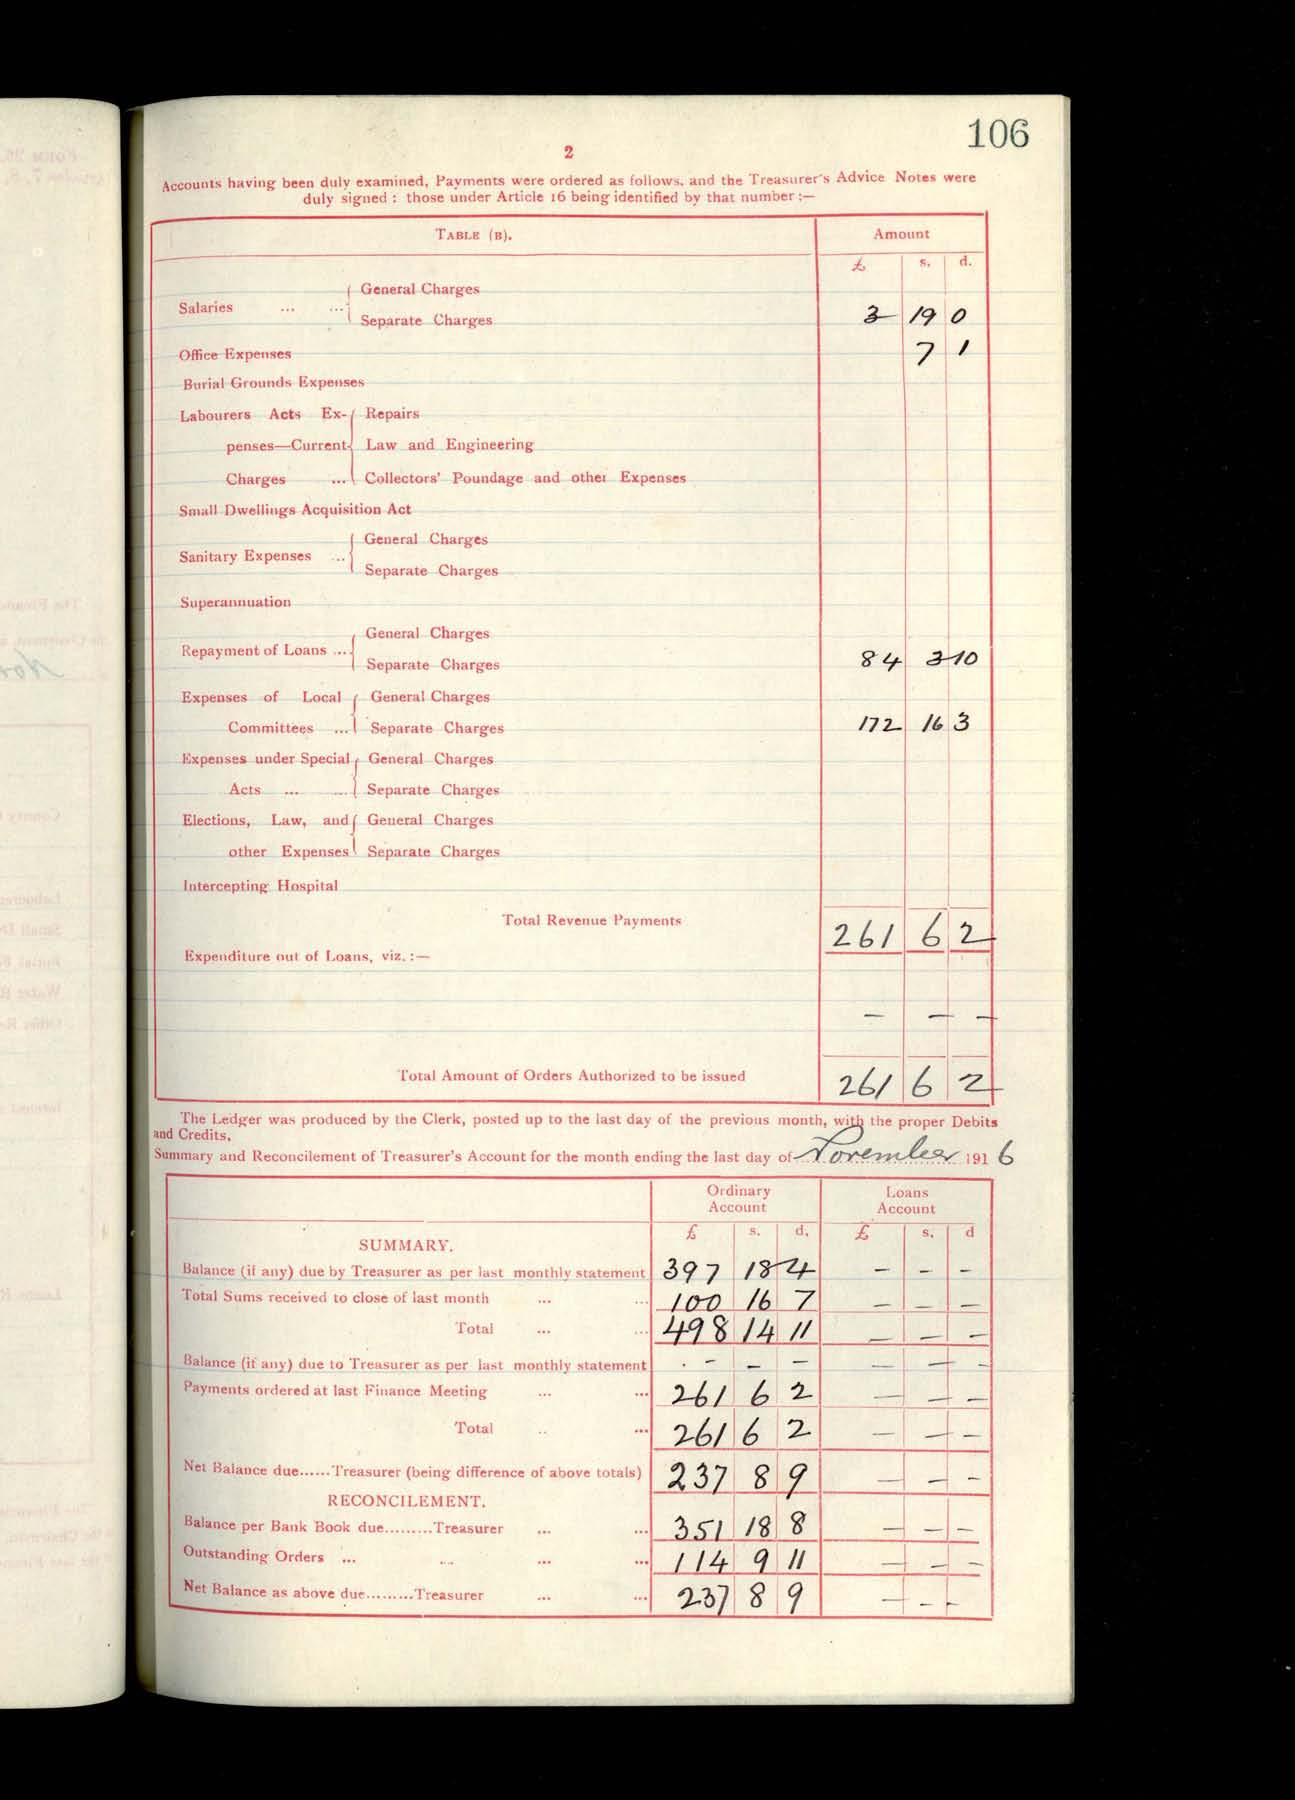 106
2
Accounts having been duly examined, Payments were ordered as follows, and the Treasurer's Advice Notes were
duly signed : those under Article 16 being identified by that number :—
TABLE (B). Amount
£ s. d.
General Charges
Salaries ... ...
Separate Charges 3 19 0
Office Expenses 7 1
Burial Grounds Expenses
Labourers Acts Ex- Repairs
penses—Current Law and Engineering
Charges ... Collectors' Poundage and other Expenses
Small Dwellings Acquisition Act
General Charges
Sanitary Expenses ...
Separate Charges
Superannuation
General Charges
Repayment of Loans ...
Separate Charges 84 3 10
Expenses of Local General Charges
Committees ... Separate Charges 172 16 3
Expenses under Special General Charges
Acts ... ... Separate Charges
Elections, Law, and General Charges
other Expenses Separate Charges
Intercepting Hospital
Total Revenue Payments 261 6 2
Expenditure out of Loans, viz. :—
— — —
Total Amount of Orders Authorized to be issued 261 6 2
The Ledger was produced by the Clerk, posted up to the last day of the previous month, with the proper Debits
and Credits.
Summary and Reconcilement of Treasurer's Account for the month ending the last day of November 1916
Ordinary Account Loans Account
£ s. d. £ s. d
SUMMARY.
Balance (if any) due by Treasurer as per last monthly statement 397 18 4 — — —
Total Sums received to close of last month ... ... 100 16 7 — — —
Total ... ... 498 14 11 — — —
Balance (if any) due to Treasurer as per last monthly statement — — — — — —
Payments ordered at last Finance Meeting ... ... 261 6 2 — — —
Total .. ... 261 6 2 — — —
Net Balance due......Treasurer (being difference of above totals) 237 8 9 — — —
RECONCILEMENT.
Balance per Bank Book due.........Treasurer ... ... 351 18 8 — — —
Outstanding Orders ... ... ... ... 114 9 11 — — —
Net Balance as above due.........Treasurer ... ... 237 8 9 — — —